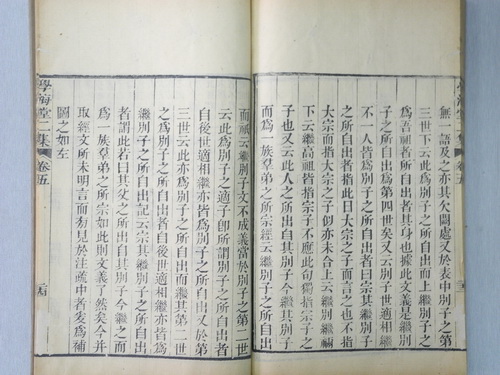 學海堂二集
卷五
無一語及之亦其欠闕處又於表中別子之第
三世下云此為別子之所自出而上繼別子之
別子之所自出者其身也據此文義是繼別
子之所自出為第四世矣又云別子世適相繼
不一人皆為別子之所自出者曰宗其繼別子
之所自出者指此曰大宗子之子而言之也不指
大宗而指大宗之子似亦未合上云繼別繼禰
下云繼高祖皆指宗子不應此句獨指宗子之
子也又云此人之所出自其別子今繼其別子
而為一族羣弟之所宗經云繼別子之所自出
而祗云繼別子文不成義當於別子之第二世
云此為別子之適子卽所謂別子之所自出者
自後世適相繼亦皆為別子之所自出又於第
三世云此亦為別子之所自出而繼其第二世
繼別子之所自出者自後世適相繼亦皆為
繼別子之所自出記云宗其繼別子之所自出
者謂此若曰其父之所出自其別子今繼之而
為一族羣弟之所宗如此則文義了然矣今并
取經文所未明言而易見於注疏中者爰為補
圖之如左
學海堂二集
卷五